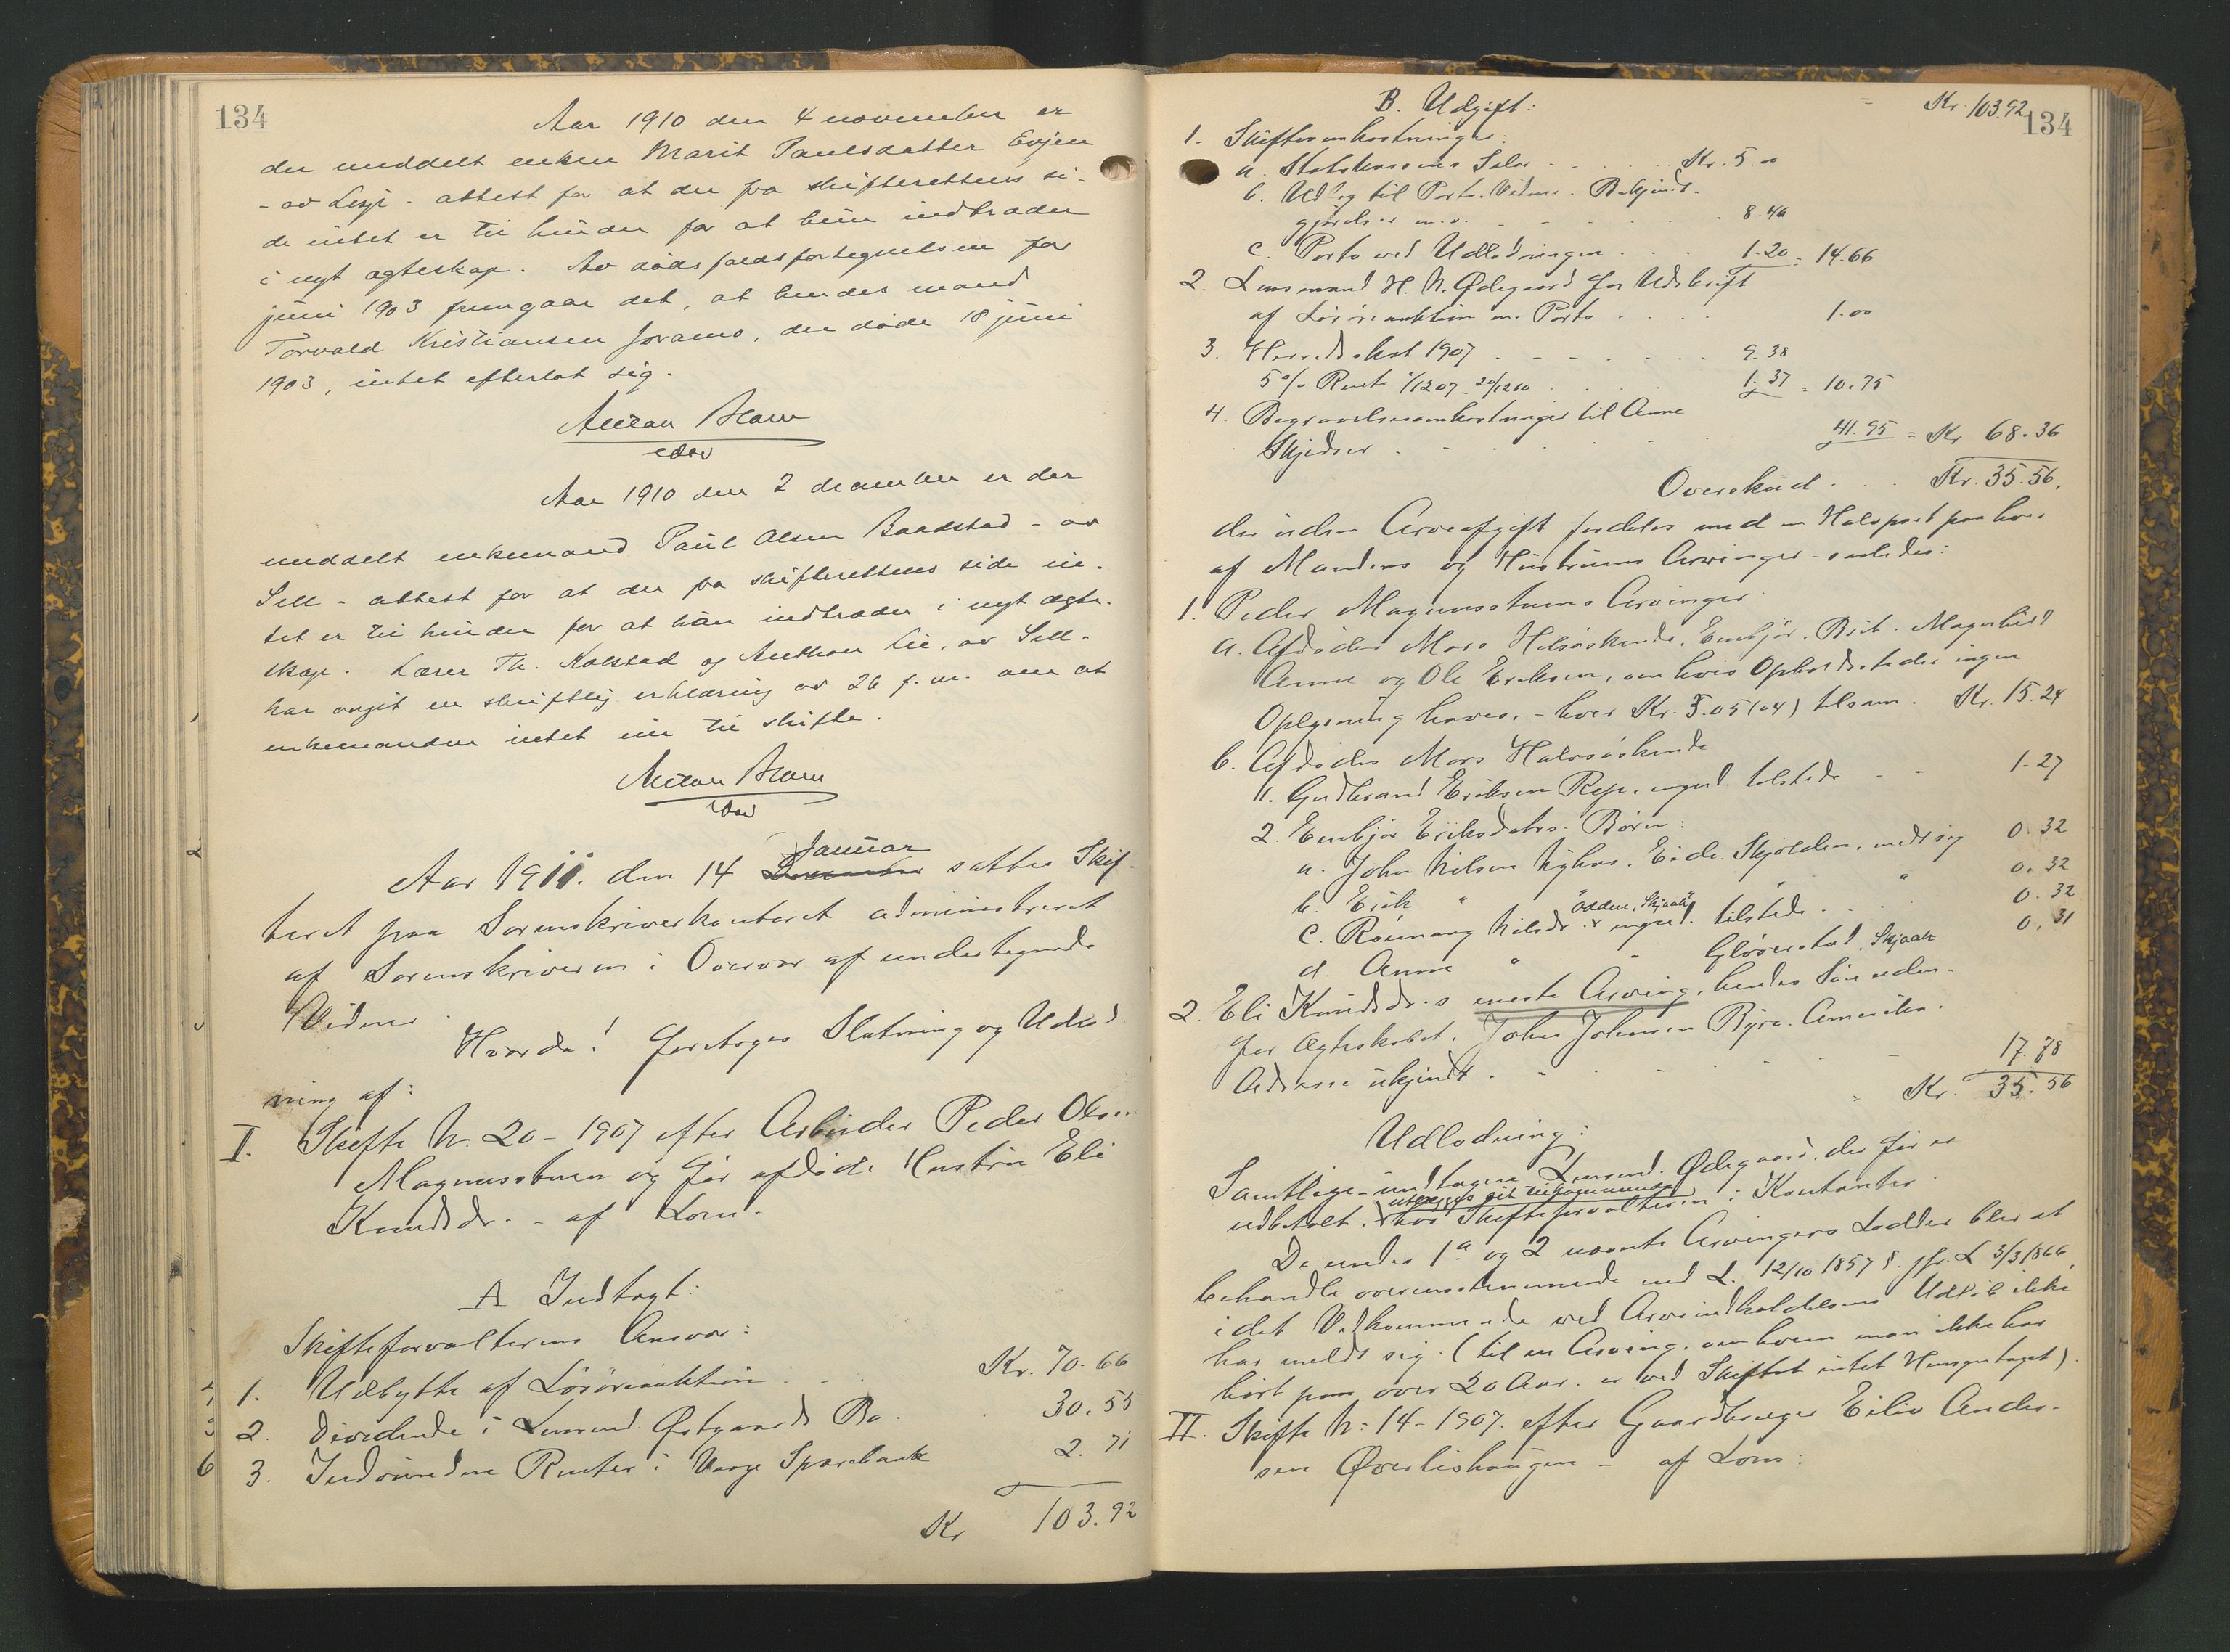 134
Aar 1910 den 4 november er
der meddelt enken Marit Paulsdatter Evjen
- av Lesje - attest for at der fra skifterettens si-
de intet er til hinder for at hun indtræder
i nyt ægteskap. Av dødsfaldsfortegnelsen for
juni 1903 fremgaar det, at hendes mand
Torvald Kristiansen Joramo, der døde 18 juni
1903, intet efterlot sig.
Aar 1910 den 2 december er der
meddelt enkemand Paul Olsen Baadstad - av
Sell - attest for at der fra skifterettens side in-
tet er til hinder for at han indtræder i nyt ægte-
skap. Lærer Th. Kolstad og Anthon Lie, av Sell -
har avgit en skriftlig erklæring av 26 f. m. om at
enkemanden intet eier til skifte.
Januar
Aar 1911. den 14 December sattes Skif-
teret paa Sorenskriverkontoret administreret
af Sorenskriveren i Overvær af undertegnede
Vidner.
Hvorda! foretoges Slutning og Udlod
ning af:
I. Skifte N. 20 - 1907 efter Arbeider Peder Olsen
Magnusstuen og før afdøde Hustru Eli
Knudsdr. - af Lom.
A Indtægt:
Skifteforvalterens Ansvar:
1. Udbytte af Løsøreauktion . . Kr. 70.66
2. Dividende i Lensmd. Østgaards Bo . 30.55
3. Indvundne Renter i Vaage Sparebank 2.71
Kr 103.92
134
B. Udgift: = Kr. 103.92
1. Skifteomkostninger:
a. Statskassens Salær . . . Kr. 5.00
b. Udlæg til Porto. Vidner. Bekjendt-
gjørelser m.v. . . . 8.46
c. Porto ved Udlodningen . . . 1.20 = 14.66
2. Lensmand H. N. Ødegaard for Udskrift
af Løsøreauktion m. Porto . . . 1.00
3. Herredsskat 1907 . . . 9.38
5 % Rente 1/12 07 - 20/12 10 . . . 1.37 = 10.75
4. Begravelsesomkostninger til Anne
Skjedser . . . 41.95 = Kr 68.36
Overskud . . . Kr. 35.56,
der uden Arveafgift fordeles med en Halvpart paa hver
af Mandens og Hustruens Arvinger - saaledes:
1. Peder Magnusstuens Arvinger
a. Afdødes Mors Helsøskende, Embjør. Brit. Magnhild
Anne og Ole Eriksen, om hvis Opholdssteder ingen
Oplysning haves, - hver Kr. 3.05 (04) tilsam. Kr. 15.24
b. Afdødes Mors Halvsøskende
1. Gudbrand Eriksen Rep. ingd. tilstede - - 1.27
2. Embjør Eriksdatrs. Børn:
a. John Nilsen Nyhus. Eide. Skjolden, meldt sig 0.32
b. Erik " " " 0.32
Odden, Skjaak
c. Rønnaug Nilsdr. ingd. tilstede . . 0.32
d. Anne " - Gløverstad, Skjaak 0.31
2. Eli Knudsdr.s eneste Arving, hendes Søn uden-
for Ægteskabet, John Johnsen Byre. Amerika.
Adresse ukjendt . - - - 17.78
= Kr. 35.56
Udlodning:
Samtlige - undtagen Lensmd. Ødegaard. der før er
utlægges sit tilkommende
udbetalt. hos Skifteforvalteren i Kontanter.
De under 1a og 2 nævnte Arvingers Lodder blir at
behandle overensstemmende med L. 12/10 1857 §. jfr. L 3/3 1866,
idet Vedkommende ved Arveindkaldelsens Udløb ikke
har meldt sig. (til en Arving, om hvem man ikke har
hørt paa over 20 Aar. er ved Skiftet intet Hensyn taget).
II. Skifte N: 14 - 1907. efter Gaardbruger Eiliv Ander-
sen Øverlishaugen - af Lom: